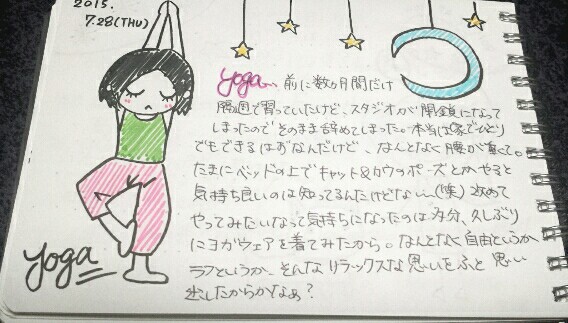 2015.
7.28(THU)
yoga... 前に数ヵ月間だけ
隔週で習っていたけど、スタジオが閉鎖になって
しまったのでそのまま辞めてしまった。本当は家でひとり
でもできるはずなんだけど、なんとなく腰が重くて。
たまにベッドの上でキャット&カウのポーズとかやると
気持ち良いのは知ってるんだけどな~(笑) 改めて
やってみたいなって気持ちになったのは多分、久しぶり
にヨガウェアを着てみたから。なんとなく自由というか
ラフというか、そんなリラックスな思いをふと思い
出したからかなぁ?
yoga